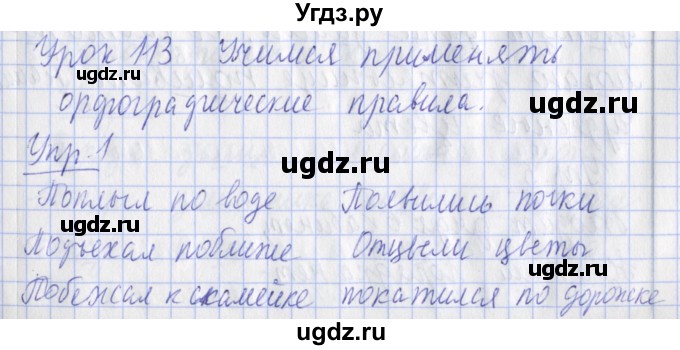 Угдз.ру
Урок 113 Учимся применять
ugdz.ru ugdz.ru
орфографические правила. ugdz.ru
Упр. 1 ugdz.ru
Поплыл по воде Появились почки
ugdz.ru ugdz.ru
Подъехал поближе Отцвели цветы
ugdz.ru
Побежал к скамейке покатился по дорожке
ugdz.ru